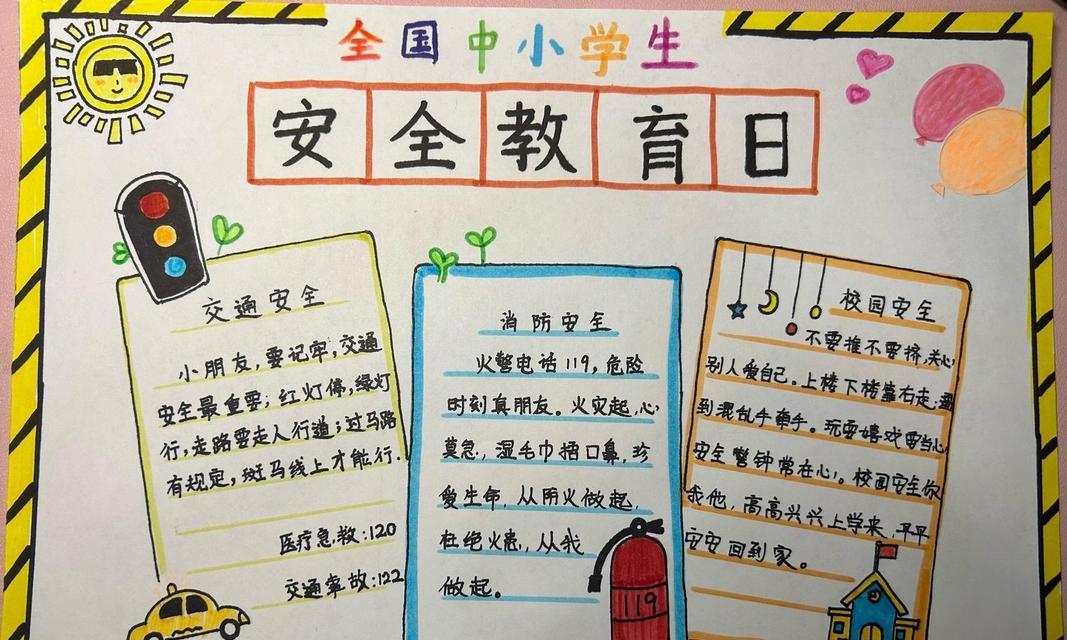 全国中小学生
安全教育日
交通安全
小朋友,要记牢,交通
安全最重要;红灯停,绿灯
行,走路要走人行道;过马路
有规定,斑马线上才能行.
医疗急救:120
交通事故:122
消防安全
火警电话119,危险
时刻真朋友。火灾起,心
莫急,湿毛巾捂口鼻,珍
爱生命,从防火做起,
杜绝火患,从我
做起。
119
校园安全
不要推不要挤,关心
别人爱自己。上楼下楼靠右走;遇
到混乱手牵手。玩耍嬉戏要当心
安全警钟常在心。校园安全你
我他,高高兴兴上学来,平平
安安回到家。